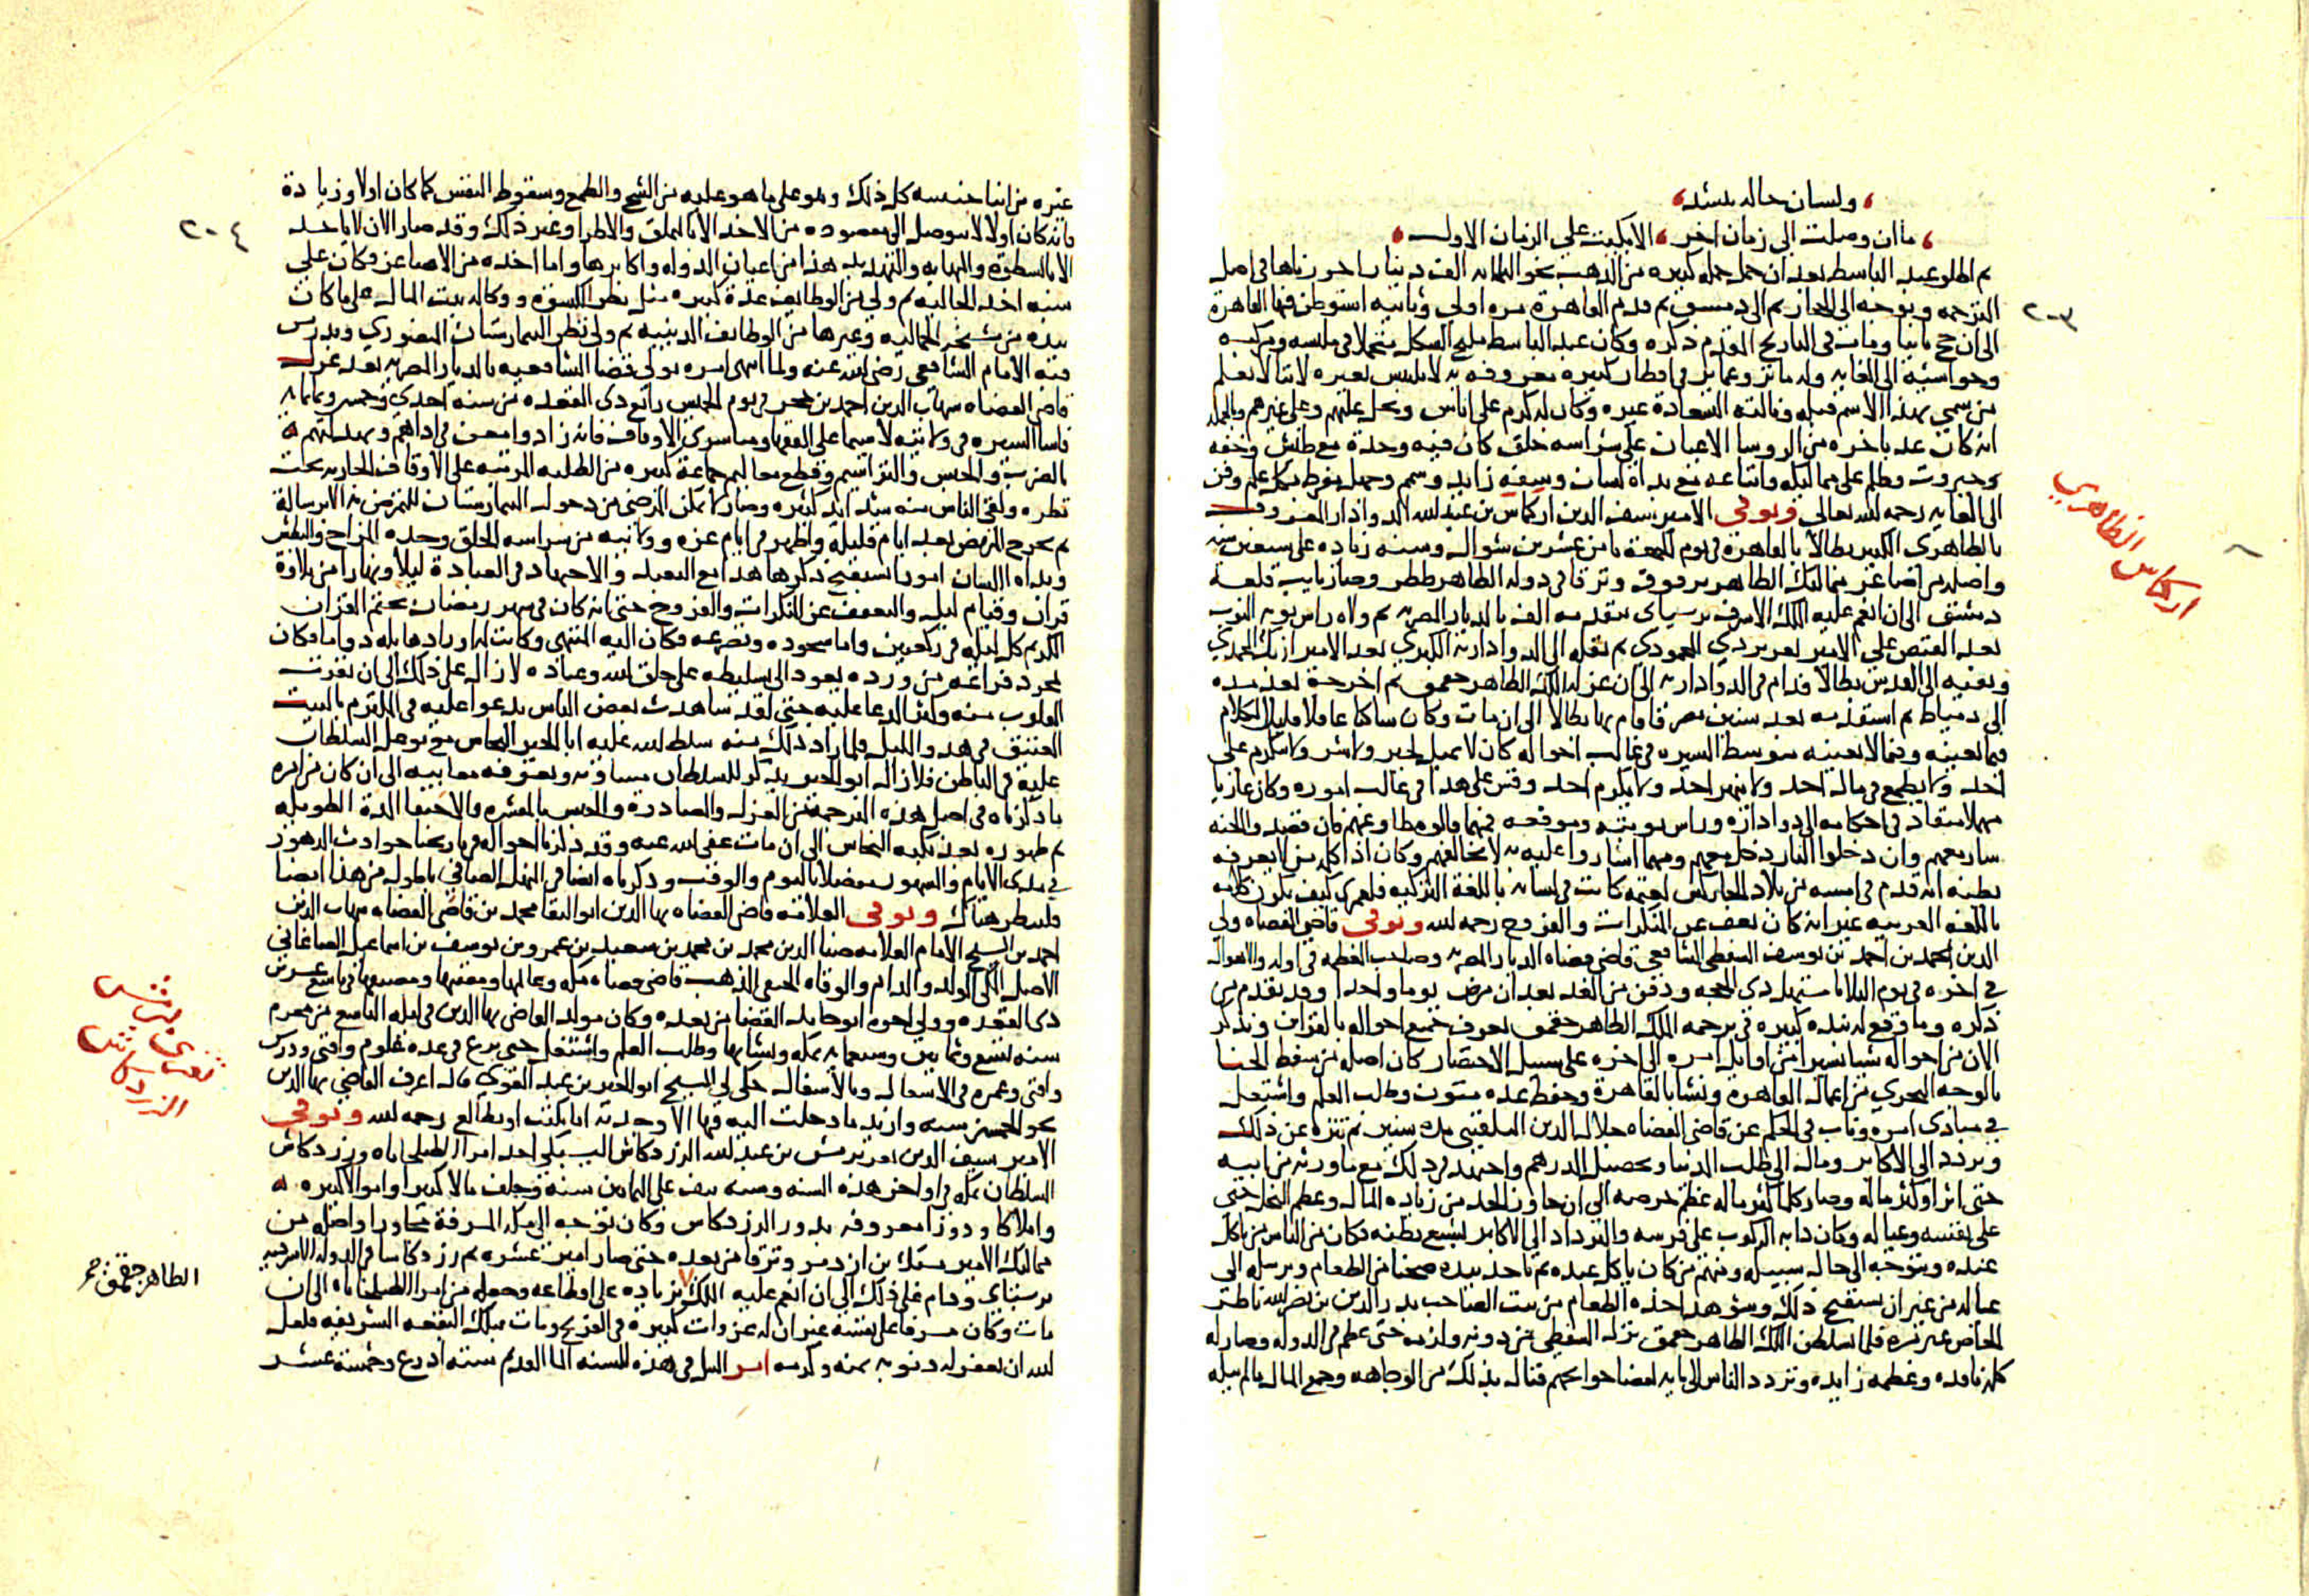 ولسان حاله ينشد
ما ان وصلت الى زمان اخر الا بكيت على الزمان الاول
ثم اطلق عبد الباسط بعد ان حمل جملة كبيره من الذهب نحو الثلثمايه الف دينار احررناها في اصل
الترجمه وتوجه الى الحجاز ثم الى دمشق ثم قدم القاهرة مره اولى وثانيه استوطن فيها القاهرة
الى ان حج ثانيا ومات في التاريخ المقدم ذكره وكان عبد الباسط مليح الشكل متجملا في ملبسه ومركبه
وحواشيه الى الغايه وله ماثر وعماير في اقطار كثيره معروفه به لا تلتبس بغيره لاننا لا نعلم
من سمي بهذا الاسم قبله ونالته السعادة غيره وكان له كرم على اناس وبخل عليهم وعلى غيرهم وبالجمله
انه كان عد باخره من الروسا الاعيان على شراسه خلق كان فيه وحدة مع طيش وخفه
وجبروت وظلم على مماليكه واتباعه مع بذاة لسان وسفه زايد وشمم وجهل مفرط بكل علم وفن
الى الغايه رحمه الله تعالى وتوفي الامير سيف الدين اركماس بن عبد الله الدوادار المعروف
بالظاهري الكبير بطالا بالقاهرة في يوم الجمعه ثامن عشرين شوال وسنه زياده على سبعين سنه
واصله من اصاغر مماليك الظاهر برقوق وترقا في دوله الظاهر ططر وصار نايب قلعه
دمشق الى ان انعم عليه الملك الاشرف برسباى بتقدمه الف بالديار المصريه ثم ولاه راس نوبه النوب
بعد القبض على الامير تغري بردي المحمودي ثم نقله الى الدوادارية الكبرى بعد الامير ازبك المحمدي
ونفيه الى القدس بطالا فدام في الدواداريه الى ان عزله الملك الظاهر جقمق ثم اخرجه بعد مده
الى دمياط ثم استقدمه بعد سنين مصر فاقام بها بطالا الى ان مات وكان ساكنا عاقلا قليل الكلام
فيما يعنيه وفيما لا يعنيه متوسط السيره في غالب احواله كان لا يميل لخير ولا شر ولا يتكرم على
احد ولا يطمع في مال احد ولا ينهر احد ولا يكرم احد وقس على هذا في غالب اموره وكان عاريا
مهملا منقاد في احكامه الى دوادازه وراس نوبته وموقعه فيهما قالوه مطاوعهم فان قصدوا الجنه
سار معهم وان دخلوا النار دخل معهم ومهما اشاروا عليه به لا يخالفهم وكان اذا كلمه من لا يعرفه
يظنه انه قدم في امسه من بلاد الجاركس لغتمه كانت في لسانه باللغة التركيه فلعمري كيف يكون كلامه
باللغه العربيه غير انه كان يعف عن المنكرات والفروج رحمه الله وتوفي قاضي القضاه ولي
الدين محمد بن احمد بن يوسف السفطي الشافعي قاضي قضاه الديار المصريه وصاحب العظمه في اوله والاهوال
في اخره في يوم الثلاثا مستهل ذى الحجه ودفن من الغد بعد ان مرض يوما واحدا وقد تقدم من
ذكره وما وقع له نبذه كبيره في ترجمه الملك الظاهر جقمق تعرف جميع احواله بالقران ونذكر
الان من احواله شيا يسيرا من اوايل امره الى اخره على سبيل الاختصار كان اصله من سفط الحنا
بالوجه البحري من اعمال القاهرة ونشا بالقاهرة وحفظ عده متون وطلب العلم واشتغل
في مبادى امره وناب في الحكم عن قاضي القضاه جلال الدين البلقيني مده سنين ثم تنزه عن ذلك
وتردد الى الاكابر ومال الى طلب الدنيا وتحصيل الدرهم واجتهد في ذلك مع ما ورثه من ابيه
حتى اثرا وكثر ماله وصار كلما كثر ماله عظم حرصه الى ان جاوز الحد من زيادة المال وعظم البخل حتى
على نفسه وعياله وكان دابه الركوب على فرسه والترداد الى الاكابر لشبع بطنه فكان من الناس من ياكل
عنده ويتوجه الى حال سبيله ومنهم من كان ياكل عنده ثم ياخذ بيده صحنا من الطعام ويرسله الى
عياله من غير ان يستقبح ذلك وشوهد اخذه الطعام من بيت الصاحب بدر الدين بن نصر الله ناظر
الخاص غير مره فلما تسلطن الملك الظاهر جقمق نزل السفطي من دونه ولزمه حتى عظم في الدوله وصار له
كلمه نافذه وعظمه زايده وتردد الناس الى بابه لقضا حوايجهم فنال بذلك من الوجاهه وجمع المال ما لم ينله
٢٠٣
اركماس الظاهري
غيره من ابنا جنسه كل ذلك وهو على ما هو عليه من الشح والطمع وسقوط النفس كما كان اولا وزيادة
فانه كان اولا لا يتوصل الى مقصوده من الاخذ الا بالملق والاطراء وغير ذلك وقد صار الان لا ياخذ
الا بالسطوة والمهابه والتهديد هذا من اعيان الدوله واكابرها واما اخذه من الاصاغر فكان على
سنه اخذ الجاليه ثم ولى من الوظايف عدة كبيره مثل نظر الكسوة ووكاله بيت المال على ما كان
بيده من مشيخه الجماليه وغيرها من الوظايف الدينيه ثم ولى نظر البيمارستان المنصوري وتدريس
قبه الامام الشافعي رضي الله عنه ولما انتهى امره تولى قضا الشافعيه بالديار المصريه بعد عزل
قاضي القضاه شهاب الدين احمد بن حجر في يوم الخميس رابع ذى القعده من سنه احدى وخمسين وثمانمايه
فاسا السيره في ولايته لا سيما على الفقها ومباشري الاوقاف فانه زاد وامعن في اذاهم وبهدلتهم
بالضرب والحبس والتراسيم وقطع معاليم جماعة كبيره من الطلبه المرتبه على الاوقاف الجاريه تحت
نظره ولقي الناس منه شدايد كثيره وصار لا يمكن المرضى من دخول البيمارستان للتمرض به الا برسالة
ثم يخرج المريض بعد ايام قليلة واظهر في ايام عزه وولايته من شراسه الخلق وحده المزاج والبطش
وبذاة اللسان امورا يستقبح ذكرها هذا مع التعبد والاجتهاد في العبادة ليلا ونهارا من تلاوة
قران وقيام ليل والتعفف عن المنكرات والفروج حتى انه كان في شهر رمضان يختم القران
الكريم كل ليله في ركعتين واما سجوده وتضرعه فكان اليه المنتهى وكانت له اوراد هايله دواما فكان
بمجرد فراغه من ورده يعود الى تسليطه على خلق الله وعباده لازال على ذلك الى ان نفرت
القلوب منه وكثر الدعا عليه حتى لقد شاهدت بعض الناس يدعوا عليه في الملتزم بالبيت
العتيق في هدو الليل فلما زاد ذلك منه سلط الله عليه ابا الخير النحاس مع توغل السلطان
عليه في الباطن فلازال ابو الخير يذكر للسلطان مساوئه ويعرفه معايبه الى ان كان من امره
ما ذكرناه في اصل هذه الترجمة من العزل والمصادرة والحبس بالمقشره والاختفا المدة الطويله
ثم ظهوره بعد نكبه النحاس الى ان مات عفى الله عنه وقد ذكرنا احواله في تاريخنا حوادث الدهور
في مدى الايام والشهور مفصلا باليوم والوقت وذكرناه ايضا في المنهل الصافي باطول من هذا ايضا
فلينظر هناك وتوفي العلامة قاضي القضاه بها الدين ابو البقا محمد بن قاضي القضاه شهاب الدين
احمد بن الشيخ الامام العلامه ضيا الدين محمد بن محمد بن سعيد بن عمر بن يوسف بن اسماعيل الصاغاني
الاصل المكي المولد والدار والوفاه الحنفي المذهب قاضي قضاه مكه وعالمها ومفتيها ومصنفها في تاسع عشرين
ذى القعده وولي اخوه ابو حامد القضا من بعده وكان مولد القاضي بها الدين في ليله التاسع من محرم
سنه تسع وثمانين وسبعمايه بمكه ونشا بها وطلب العلم واشتغل حتى برع في عده علوم وافتى ودرس
وافنى وعمره في الاشغال وبالاشتغال حكى لي الشيخ ابو الخير بن عبد القوي قال اعرف القاضي بها الدين
نحو الخمسين سنه وازيد ما دخلت اليه فيها الا وجدته اما يكتب او يطالع رحمه الله وتوفي
الامير سيف الدين تمرتمش بن عبد الله الزردكاش اليشبكي احد امرا الطبلخاناه وزردكاش
السلطان بمكه في اواخر هذه السنه وسنه نيف على الثمانين سنه وخلف مالا كبيرا واموالا كثيره
واملاكا ودورا معروفه بدور الزردكاش وكان توجه الى مكه المشرفة مجاورا واصله من
مماليك الامير يشبك بن ازدمر وترقا من بعده حتى صار امير عشره ثم زردكاشا في الدوله الاشرفيه
برسباى ودام على ذلك الى ان انعم عليه الملك بزياده على اقطاعه وجعله من امرا الطبلخاناه الى ان
مات وكان مسرفا على نفسه غير ان له غزوات كثيرة في الفرنج ومات بتلك البقعه الشريفه فلعل
الله ان يغفر له ذنوبه بمنه وكرمه امر النيل في هذه السنه الما القديم سته اذرع وخمسة عشر
٢٠٤
الزردكاش
الظاهر جقمق